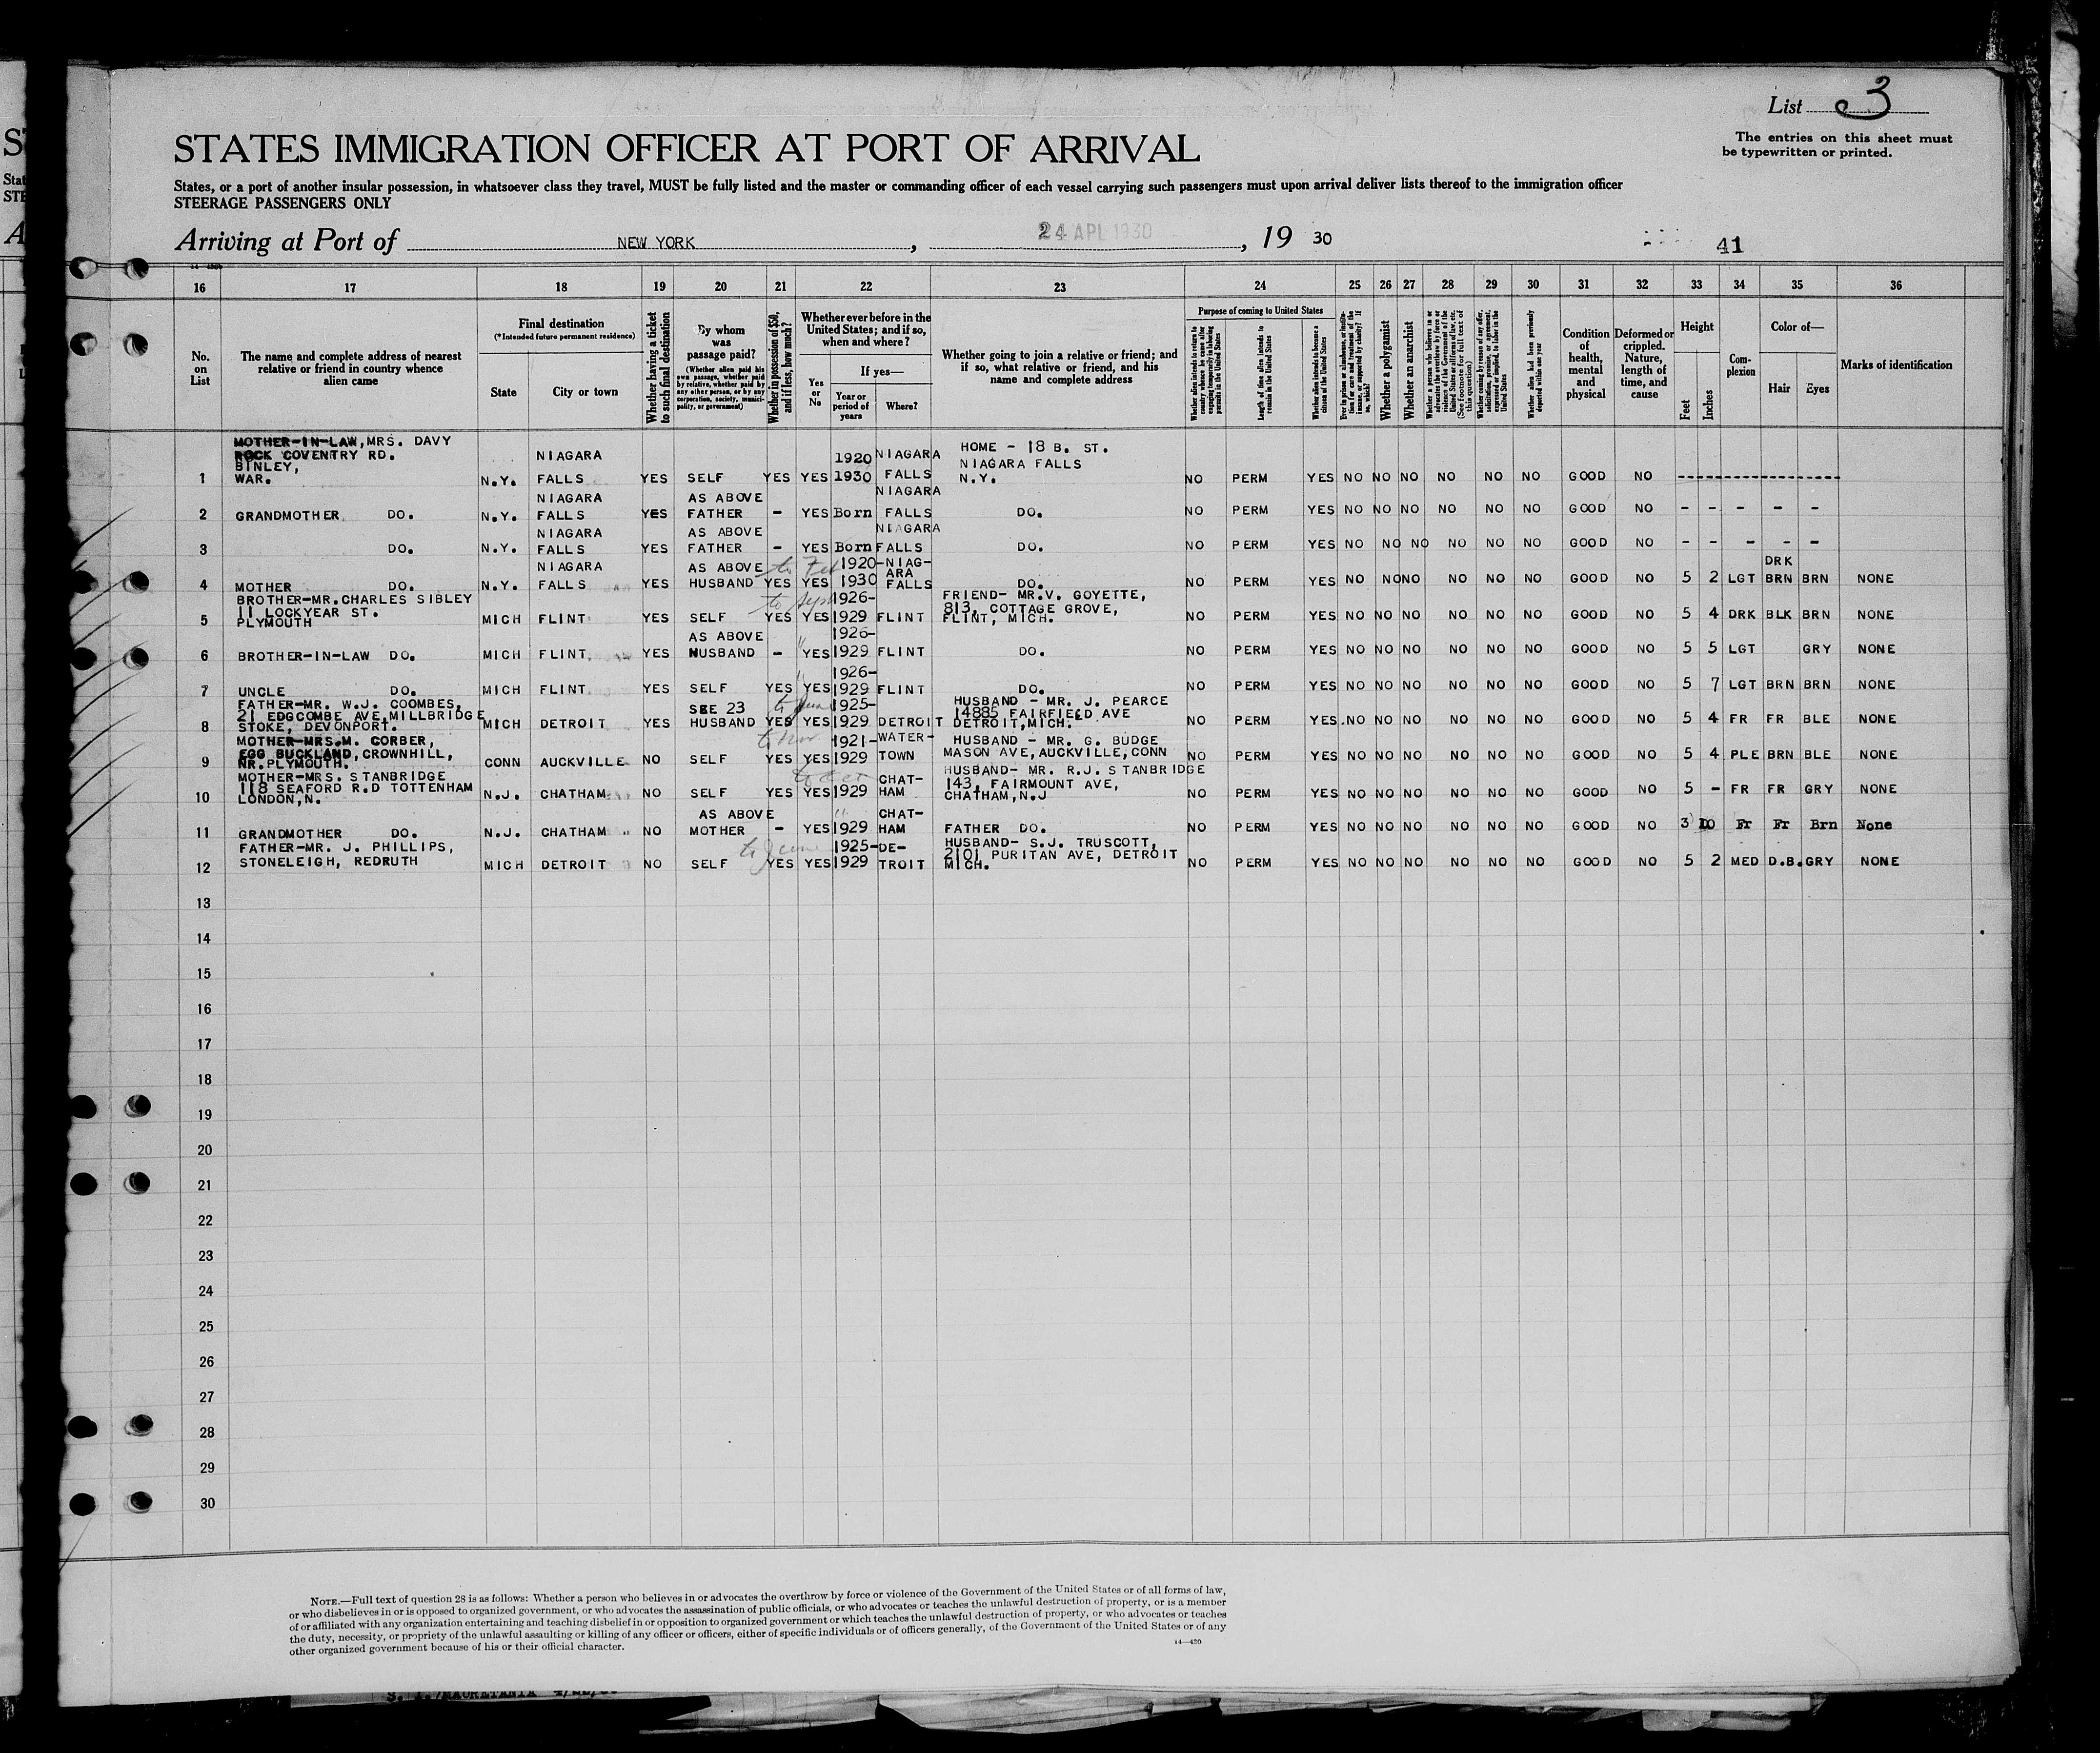 List 3
The entries on this sheet must
be typewritten or printed.
STATES IMMIGRATION OFFICER AT PORT OF ARRIVAL
States, or a port of another insular possession, in whatsoever class they travel, MUST be fully listed and the master or commanding officer of each vessel carrying such passengers must upon arrival deliver lists thereof to the immigration officer
STEERAGE PASSENGERS ONLY
Arriving at Port of NEW YORK, 24 APL 1930, 19 30
41
16 17 18 19 20 21 22 23 24 25 26 27 28 29 30 31 32 33 34 35 36
No. on List
The name and complete address of nearest relative or friend in country whence alien came
Final destination
(*Intended future permanent residence)
State
City or town
Whether having a ticket to such final destination
By whom was passage paid?
(Whether alien paid his own passage, whether paid by relative, whether paid by any other person, or by any corporation, society, municipality, or government)
Whether in possession of $50, and if less, how much?
Whether ever before in the United States; and if so, when and where?
Yes or No
If yes—
Year or period of years
Where?
Whether going to join a relative or friend; and if so, what relative or friend, and his name and complete address
Purpose of coming to United States
Whether alien intends to return to country whence he came after engaging temporarily in laboring pursuits in the United States
Length of time alien intends to remain in the United States
Whether alien intends to become a citizen of the United States
Whether a polygamist
Whether an anarchist
Whether coming by reason of any offer, solicitation, promise, or agreement, expressed or implied, to labor in the United States
Whether alien had been previously deported within one year
Condition of health, mental and physical
Deformed or crippled. Nature, length of time, and cause
Height
Feet
Inches
Complexion
Color of—
Hair
Eyes
Marks of identification
1 MOTHER-IN-LAW, MRS. DAVY ROCK COVENTRY RD. BINLEY, WAR. N.Y. NIAGARA FALLS YES SELF YES YES 1920 1930 NIAGARA FALLS HOME - 18 B. ST. NIAGARA FALLS N.Y. NO PERM YES NO NO NO NO NO NO GOOD NO --------------------
2 GRANDMOTHER DO. N.Y. NIAGARA FALLS YES AS ABOVE FATHER - YES Born NIAGARA FALLS DO. NO PERM YES NO NO NO NO NO NO GOOD NO - - - - -
3 DO. N.Y. NIAGARA FALLS YES AS ABOVE FATHER - YES Born NIAGARA FALLS DO. NO PERM YES NO NO NO NO NO NO GOOD NO - - - - -
4 MOTHER DO. N.Y. NIAGARA FALLS YES AS ABOVE HUSBAND YES YES to Feb 1920- 1930 NIAGARA FALLS DO. NO PERM YES NO NO NO NO NO NO GOOD NO 5 2 LGT DRK BRN BRN NONE
5 BROTHER-MR. CHARLES SIBLEY 11 LOCKYEAR ST. PLYMOUTH MICH FLINT YES SELF YES YES to Sept 1926- 1929 FLINT FRIEND- MR. V. GOYETTE, 813, COTTAGE GROVE, FLINT, MICH. NO PERM YES NO NO NO NO NO NO GOOD NO 5 4 DRK BLK BRN NONE
6 BROTHER-IN-LAW DO. MICH FLINT YES AS ABOVE HUSBAND - " YES 1926- 1929 FLINT DO. NO PERM YES NO NO NO NO NO NO GOOD NO 5 5 LGT GRY NONE
7 UNCLE DO. MICH FLINT YES SELF YES " YES 1926- 1929 FLINT DO. NO PERM YES NO NO NO NO NO NO GOOD NO 5 7 LGT BRN BRN NONE
8 FATHER-MR. W.J. COOMBES, 21 EDGCOMBE AVE, MILLBRIDGE STOKE, DEVONPORT. MICH DETROIT YES SEE 23 HUSBAND YES YES to June 1925- 1929 DETROIT HUSBAND - MR. J. PEARCE 14885 FAIRFIELD AVE DETROIT, MICH. NO PERM YES. NO NO NO NO NO NO GOOD NO 5 4 FR FR BLE NONE
9 MOTHER-MRS. M. CORBER, EGG BUCKLAND, CROWNHILL, NR. PLYMOUTH. CONN AUCKVILLE NO SELF YES YES to Nov 1921- 1929 WATER-TOWN HUSBAND - MR. G. BUDGE MASON AVE, AUCKVILLE, CONN NO PERM YES NO NO NO NO NO NO GOOD NO 5 4 PLE BRN BLE NONE
10 MOTHER-MRS. STANBRIDGE 118 SEAFORD R.D TOTTENHAM LONDON, N. N.J. CHATHAM NO SELF YES YES to Oct 1929 CHAT-HAM HUSBAND- MR. R.J. STANBRIDGE 143, FAIRMOUNT AVE, CHATHAM, N.J NO PERM YES NO NO NO NO NO NO GOOD NO 5 - FR FR GRY NONE
11 GRANDMOTHER DO. N.J. CHATHAM NO AS ABOVE MOTHER - YES " 1929 CHAT-HAM FATHER DO. NO PERM YES NO NO NO NO NO NO GOOD NO 3 10 Fr Fr Brn None
12 FATHER-MR. J. PHILLIPS, STONELEIGH, REDRUTH MICH DETROIT NO SELF YES YES to June 1925- 1929 DE-TROIT HUSBAND- S.J. TRUSCOTT, 2101 PURITAN AVE, DETROIT MICH. NO PERM YES NO NO NO NO NO NO GOOD NO 5 2 MED D.B. GRY NONE
13
14
15
16
17
18
19
20
21
22
23
24
25
26
27
28
29
30
NOTE.—Full text of question 28 is as follows: Whether a person who believes in or advocates the overthrow by force or violence of the Government of the United States or of all forms of law,
or who disbelieves in or is opposed to organized government, or who advocates the assassination of public officials, or who advocates or teaches the unlawful destruction of property, or is a member
of or affiliated with any organization entertaining and teaching disbelief in or opposition to organized government or which teaches the unlawful destruction of property, or who advocates or teaches
the duty, necessity, or propriety of the unlawful assaulting or killing of any officer or officers, either of specific individuals or of officers generally, of the Government of the United States or of any
other organized government because of his or their official character.
14—420